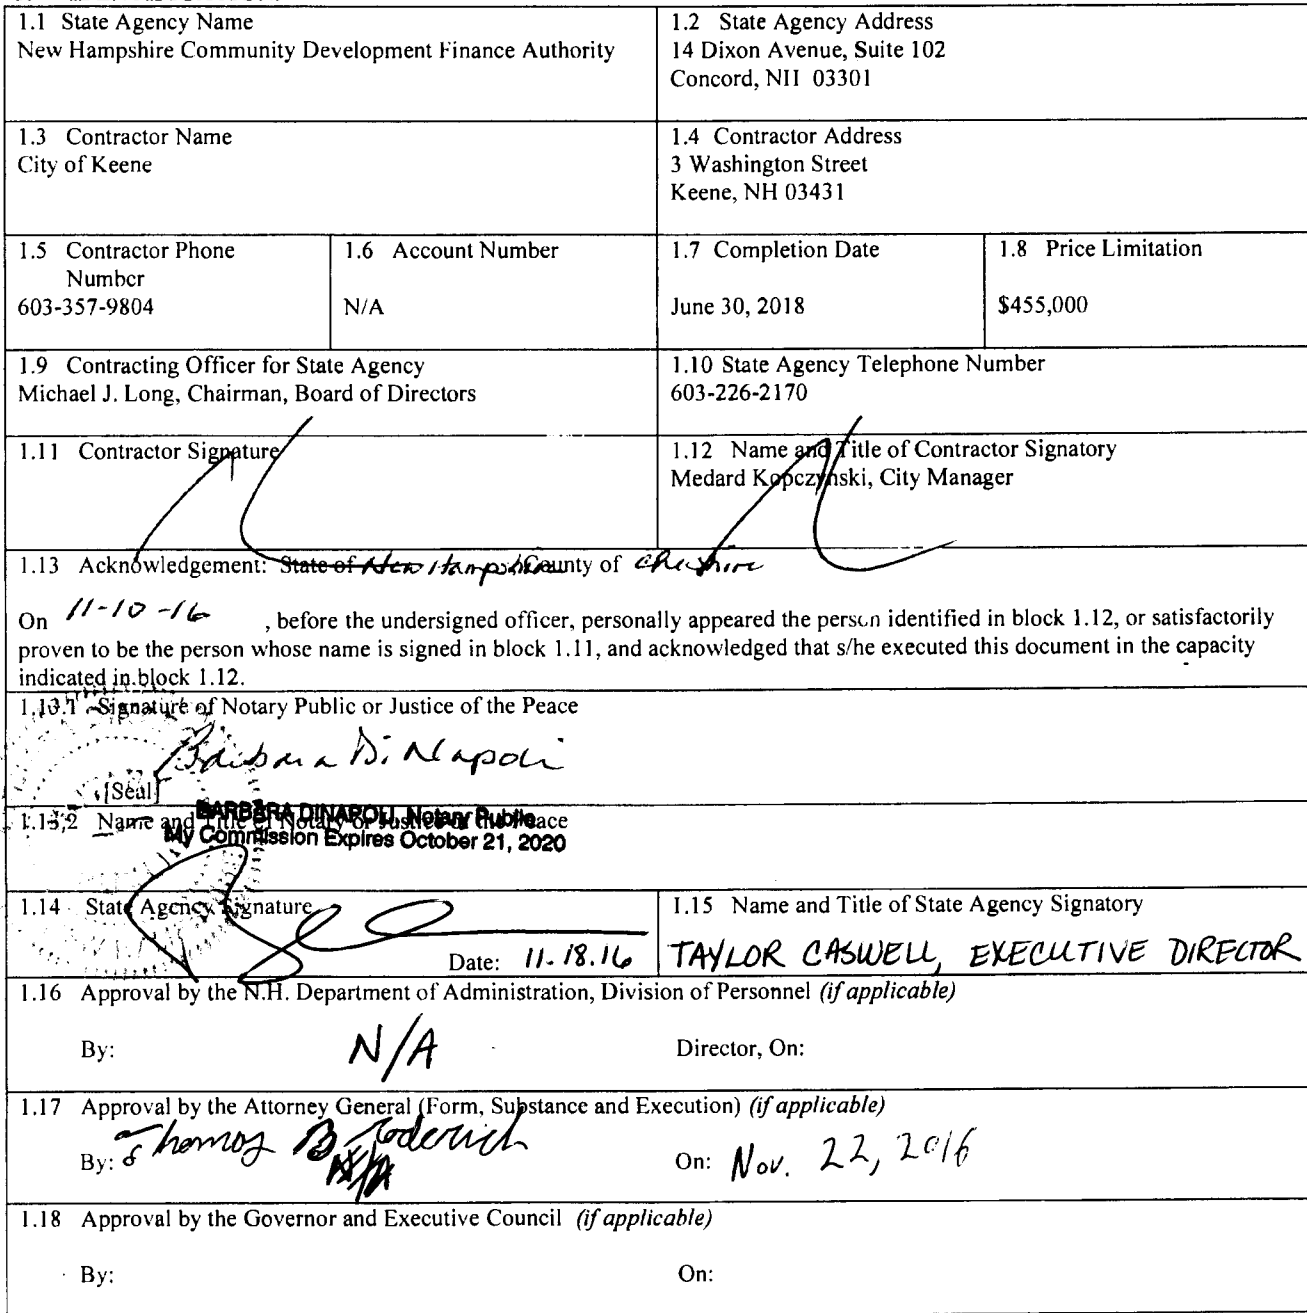 1.1 State Agency Name
New Hampshire Community Development Finance Authority
1.2 State Agency Address
14 Dixon Avenue, Suite 102
Concord, NH 03301
1.3 Contractor Name
City of Keene
1.4 Contractor Address
3 Washington Street
Keene, NH 03431
1.5 Contractor Phone
Number
603-357-9804
1.6 Account Number
N/A
1.7 Completion Date
June 30, 2018
1.8 Price Limitation
$455,000
1.9 Contracting Officer for State Agency
Michael J. Long, Chairman, Board of Directors
1.10 State Agency Telephone Number
603-226-2170
1.11 Contractor Signature
1.12 Name and Title of Contractor Signatory
Medard Kopczynski, City Manager
1.13 Acknowledgement: State of New Hampshire County of Cheshire
On 11-10-16 , before the undersigned officer, personally appeared the person identified in block 1.12, or satisfactorily
proven to be the person whose name is signed in block 1.11, and acknowledged that s/he executed this document in the capacity
indicated in block 1.12.
1.13.1 Signature of Notary Public or Justice of the Peace
Barbara DiNapoli
[Seal]
BARBARA DINAPOLI, Notary Public
1.13.2 Name and Title of Notary or Justice of the Peace
My Commission Expires October 21, 2020
1.14 State Agency Signature
Date: 11.18.16
1.15 Name and Title of State Agency Signatory
TAYLOR CASWELL, EXECUTIVE DIRECTOR
1.16 Approval by the N.H. Department of Administration, Division of Personnel (if applicable)
By: N/A Director, On:
1.17 Approval by the Attorney General (Form, Substance and Execution) (if applicable)
By: Thomas Broderick
N/A
On: Nov. 22, 2016
1.18 Approval by the Governor and Executive Council (if applicable)
By: On: